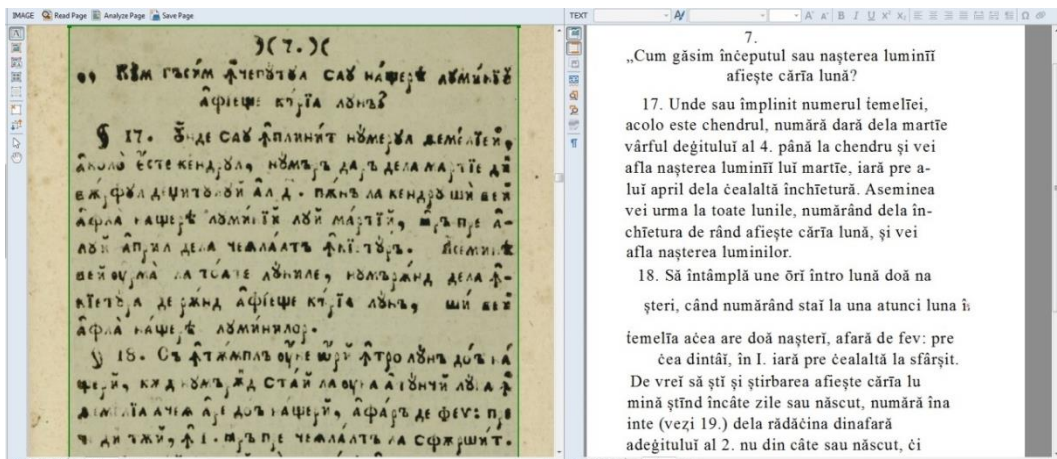 IMAGE Read Page Analyze Page Save Page
)( 7. )(
„ Кꙋм гъси́м ꙟчепꙋ́тꙋл саꙋ на́щерѣ лꙋми́нїй
а̂фїе́ще къ́рїа лꙋ́нъ?
§ 17. Ꙋ́нде саꙋ ꙟплини́т нꙋ́мерꙋл темелїей,
а̂коло̀ є́сте ке́ндрꙋл, нꙋ́мъръ да́ръ дела ма́ртїе
вѫ́рфꙋл де́џитꙋлꙋй а̂л д. пѫ́нъ ла ке́ндрꙋ ши̂ вей
а̂фла̀ на́щерѣ лꙋми́нїй лꙋй ма́ртїй, ꙗ́ръ пре а̂-
лꙋй а̂при́л дела чеала́лтъ ꙟкїетꙋ́ръ. А̂семинѣ
вей ᲂу̂рма̀ ла тоа́те лꙋ́ниле, нꙋмърѫ́нд дела ꙟ-
кїетꙋ́ра де рѫнд а̂фїе́ще къ́рїа лꙋ́нъ, ши̂ вей
а̂фла̀ на́щерѣ лꙋми́нилор.
§ 18. Съ ꙟтѫ́мплъ ᲂу́не ѡ́рй ꙟтро лꙋ́нъ до́ъ на́
щерй, кѫнд нꙋмърѫ́нд стай ла ᲂу́на а̂тꙋ́нчй лꙋ́на ꙟ
темелїа ачея а́ре до́ъ на́щерй, а̂фа́ръ де феѵ: пре
ча динтѫ́й, ꙟ І. ꙗ́ръ пре чеала́лтъ ла сфѫрши́т.
TEXT
7.
„Cum găsim înċeputul sau naşterea luminĭĭ
afieşte cărĭa lună?
17. Unde sau împlinit numerul ṫemelĭei,
acolo este chendrul, numără dară dela martĭe
vârful deġituluĭ al 4. până la chendru şi vei
afla naşterea luminĭĭ luĭ martĭe, iară pre a-
luĭ april dela ċealaltă închĭetură. Aseminea
vei urma la toate lunile, numărând dela în-
chĭetura de rând afieşte cărĭa lună, şi vei
afla naşterea luminilor.
18. Să întâmplă une ōrĭ întro lună doă na
şteri, când numărând staĭ la una atunci luna î
ṫemelĭa aċea are doă naşterĭ, afară de fev: pre
ċea dintâĭ, în I. iară pre ċealaltă la sfârşit.
De vreĭ să ştĭ şi ştirbarea afieşte cărĭa lu
mină ştĭnd încâte zile sau născut, numără îna
inte (vezĭ 19.) dela rădăċina dinafară
adeġituluĭ al 2. nu din câte sau născut, ċi